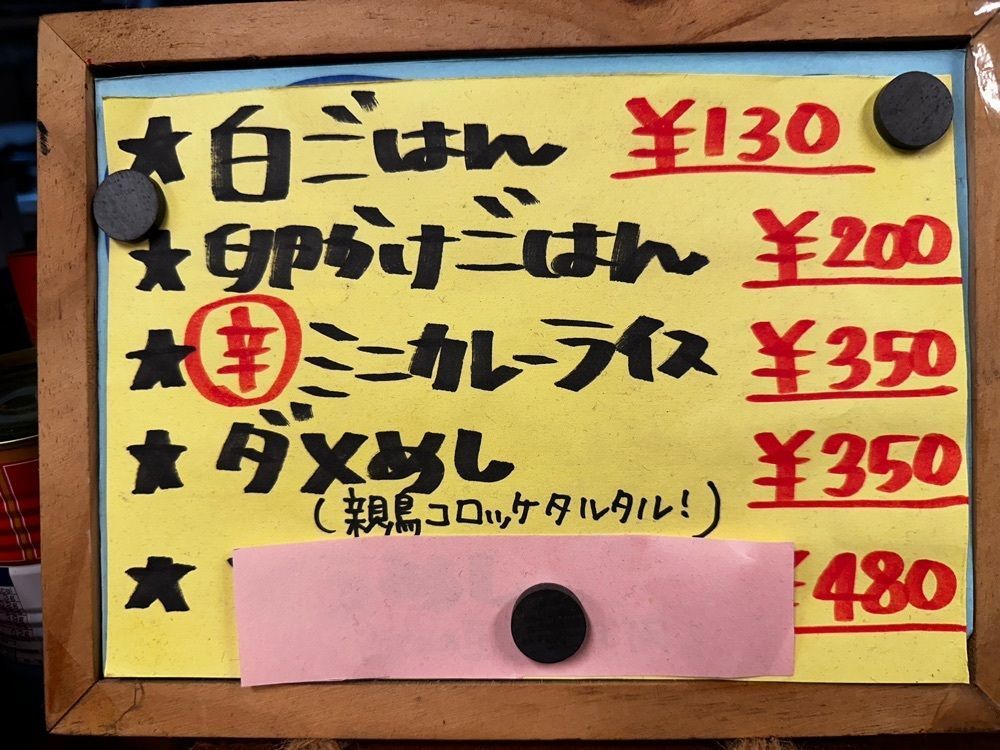 ★白ごはん ¥130
★卵かけごはん ¥200
★辛ミニカレーライス ¥350
★ダメめし ¥350
(親鳥コロッケタルタル!)
★ ¥480